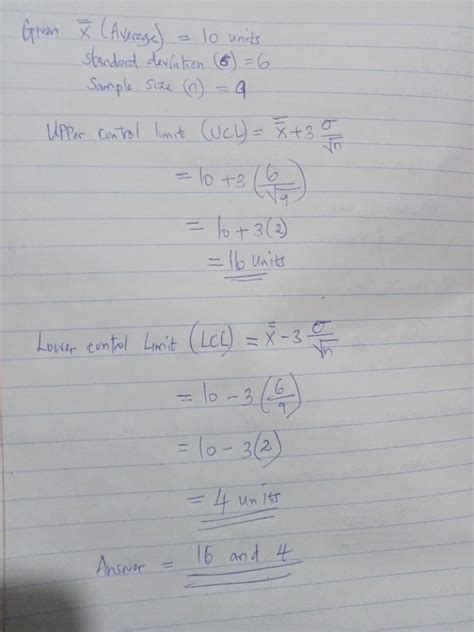 Given x̿ (Average) = 10 units
standard deviation (6) = 6
Sample size (n) = 9
Upper control limit (UCL) = x̿ + 3 σ/√n
= 10 + 3 (6/√9)
= 10 + 3(2)
= 16 units
Lower control Limit (LCL) = x̿ - 3 σ/√n
= 10 - 3 (6/9)
= 10 - 3(2)
= 4 units
Answer = 16 and 4